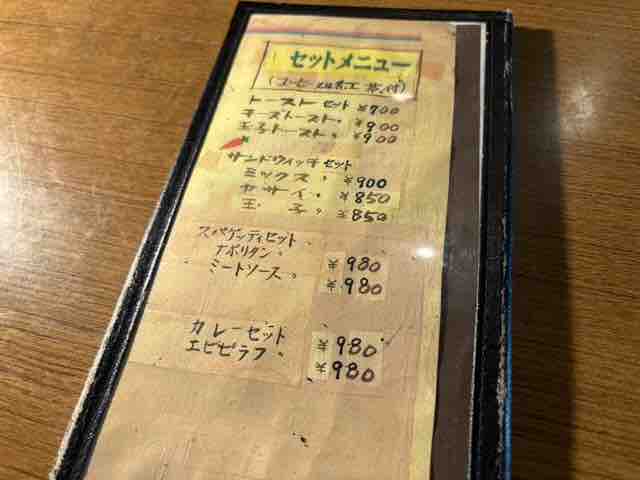 セットメニュー
(コーヒー又は紅茶付)
トーストセット ¥700
チーズトースト〃 ¥900
玉子トースト〃 ¥900
サンドウィッチセット
ミックス〃 ¥900
ヤサイ〃 ¥850
玉子〃 ¥850
スパゲッティセット
ナポリタン〃 ¥980
ミートソース〃 ¥980
カレーセット ¥980
エビピラフ〃 ¥980